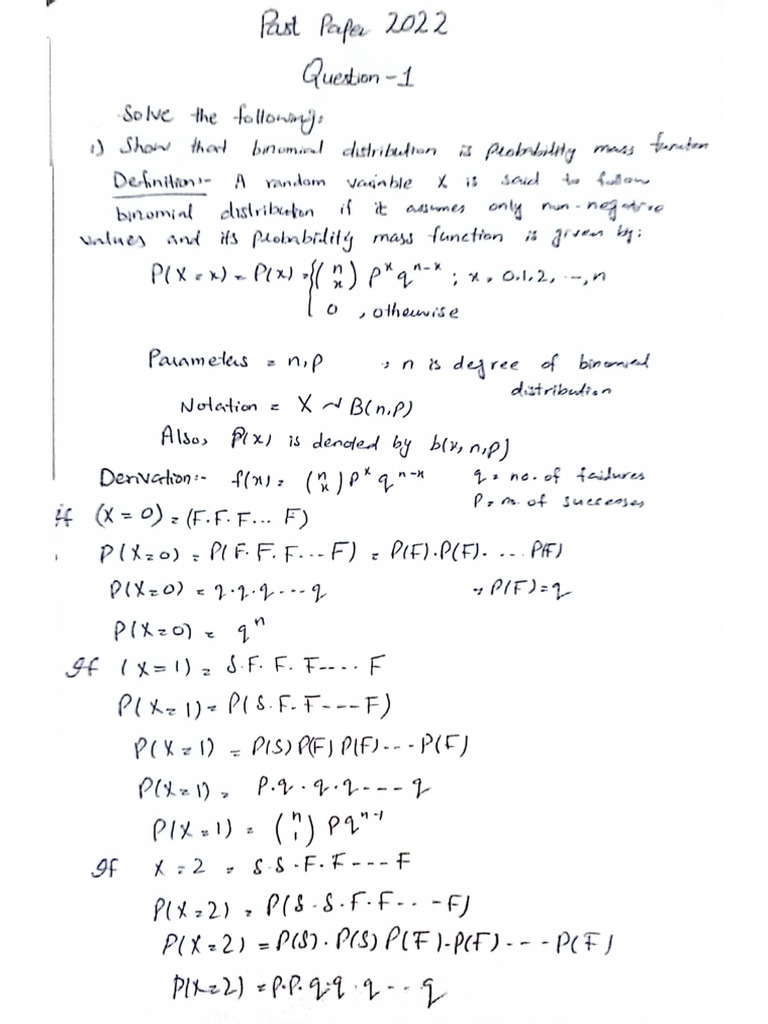 Past Paper 2022
Question-1
Solve the following:
1) Show that binomial distribution is probability mass function
Definition:- A random variable X is said to follow
binomial distribution if it assumes only non-negative
values and its probability mass function is given by:
P(X = x) = P(x) = { (n x) p^x q^{n-x} ; x, 0,1,2, --, n
0 , otherwise
Parameters = n,p ∴ n is degree of binomial
distribution
Notation = X ~ B(n,p)
Also, P(x) is denoted by b(x,n,p)
Derivation:- f(x) = (n x) p^x q^{n-x} q = no. of failures
P = no. of successes
if (X = 0) = (F. F. F... F)
P(X=0) = P(F. F. F. ... F) = P(F).P(F). ... P(F)
P(X=0) = q.q.q....q ∴ P(F)=q
P(X=0) = q^n
If (X=1) = S.F. F. F.... F
P(X=1) = P(S.F.F---F)
P(X=1) = P(S) P(F) P(F)...P(F)
P(X=1) = P.q.q.q---q
P(X=1) = (n 1) P q^{n-1}
If X=2 = S.S.F.F---F
P(X=2) = P(S.S.F.F...-F)
P(X=2) = P(S).P(S) P(F).P(F)....P(F)
P(X=2) = P.P.q.q.q...q